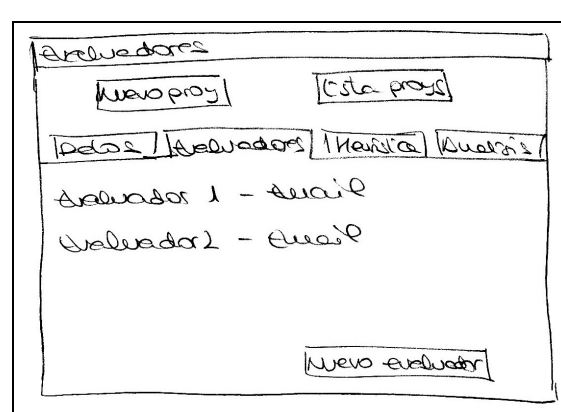 Evaluadores
Nuevo proy Lista proys
Datos Evaluadores Heurística Analisis
Evaluador 1 - Email
Evaluador 2 - Email
Nuevo evaluador